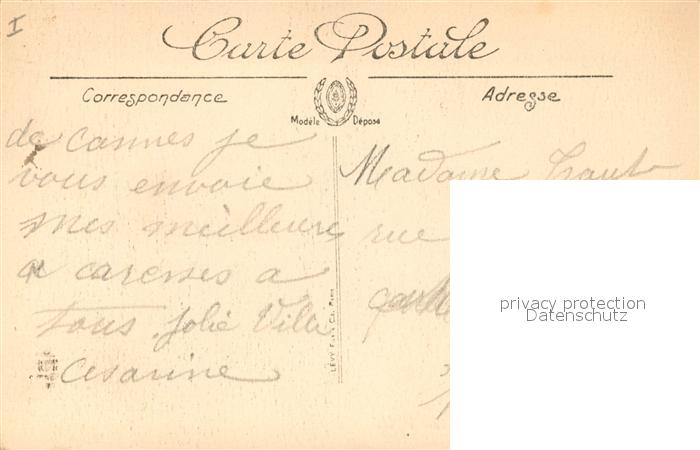 I
Carte Postale
Correspondance
Adresse
Modèle Déposé
de Cannes je
vous envoie
mes meilleures
caresses a
tous. Jolie Ville
Cesarine
LÉVY Fils & Cie, Paris
Madame
rue
privacy protection
Datenschutz